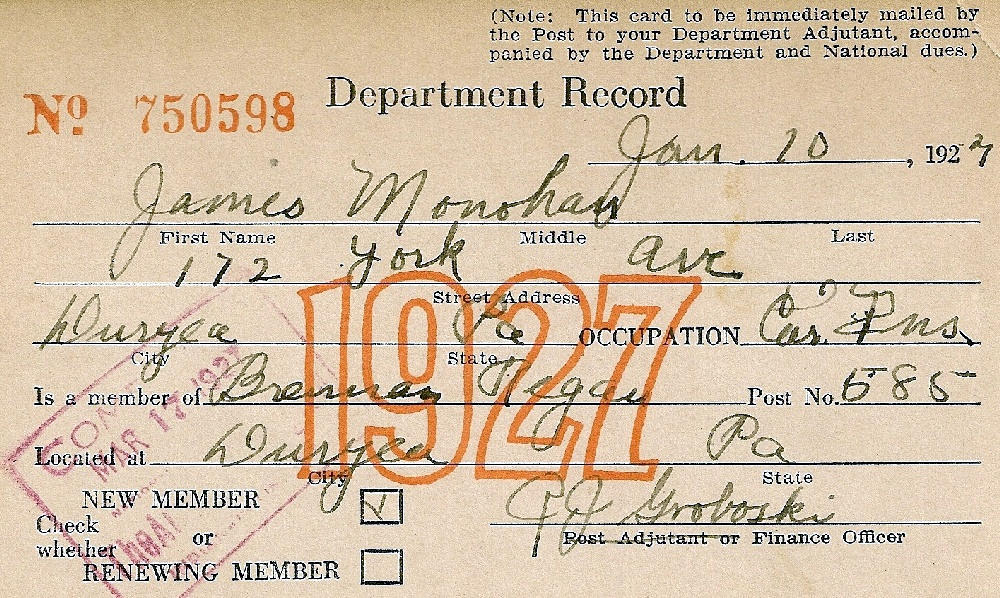 (Note: This card to be immediately mailed by
the Post to your Department Adjutant, accom-
panied by the Department and National dues.)
No. 750598 Department Record
Jan. 10, 1927
James Monohan
First Name Middle Last
172 York Ave
Street Address
1927
Duryea Pa OCCUPATION Car. Ins.
City State
Is a member of Brennan Post No. 585
Located at Duryea Pa
City State
NEW MEMBER
Check
whether or
RENEWING MEMBER
J Groboski
Post Adjutant or Finance Officer
MAR 17 192